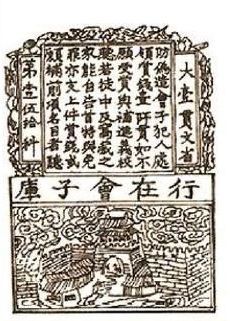 大壹貫文省
偽造會子犯人處
賞錢壹阡貫如不
願支賞與補進義校
徒中及窩藏之
家能自告首特與免
罪亦支上件賞錢或
願補前項名目者聽
第壹伍拾料
行在會子庫